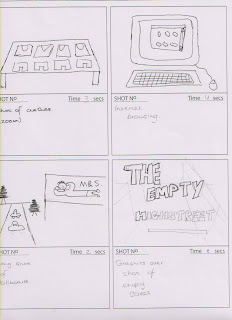 SHOT Nº Time 3 secs
Shot of
zoom)
SHOT Nº Time secs
Internet
browsing
M&S.
THE
EMPTY
HIGHSTREET
SHOT Nº Time 2 secs
shot
of
SHOT Nº Time secs
Graphics over
shot of
empty